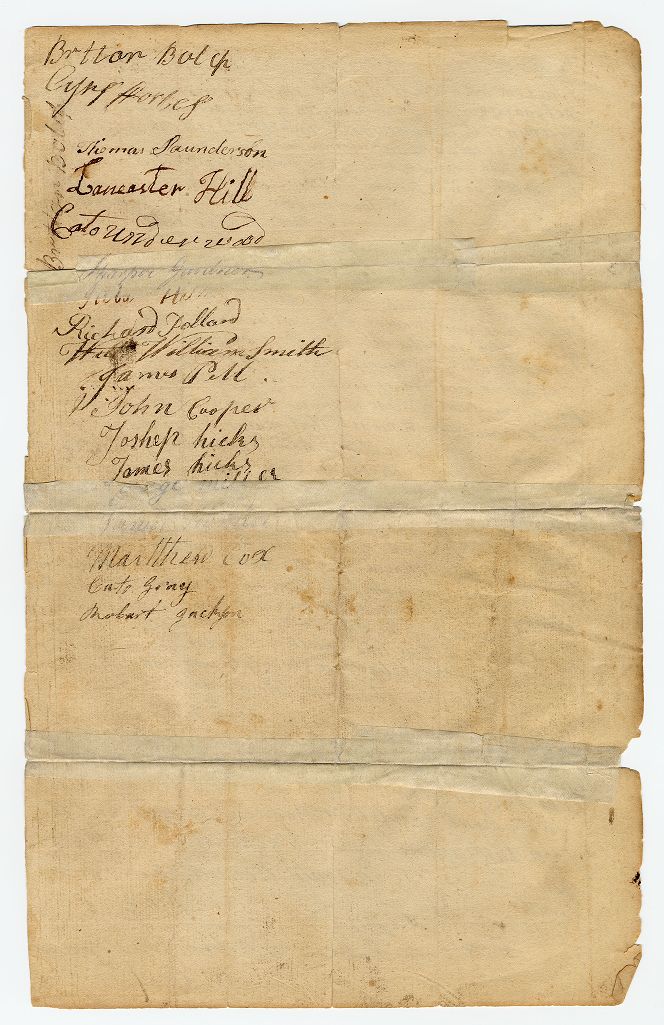 Brtton Balch
Cyrus Forbes
Thomas Saunderson
Lancaster Hill
Cato underwood
Sharper Gardner
Richard Tolland
William Smith
James Pell
John Cooper
Joshep hicks
James hicks
George Miller
Martthew Cox
Cato Gray
Robart Jackson